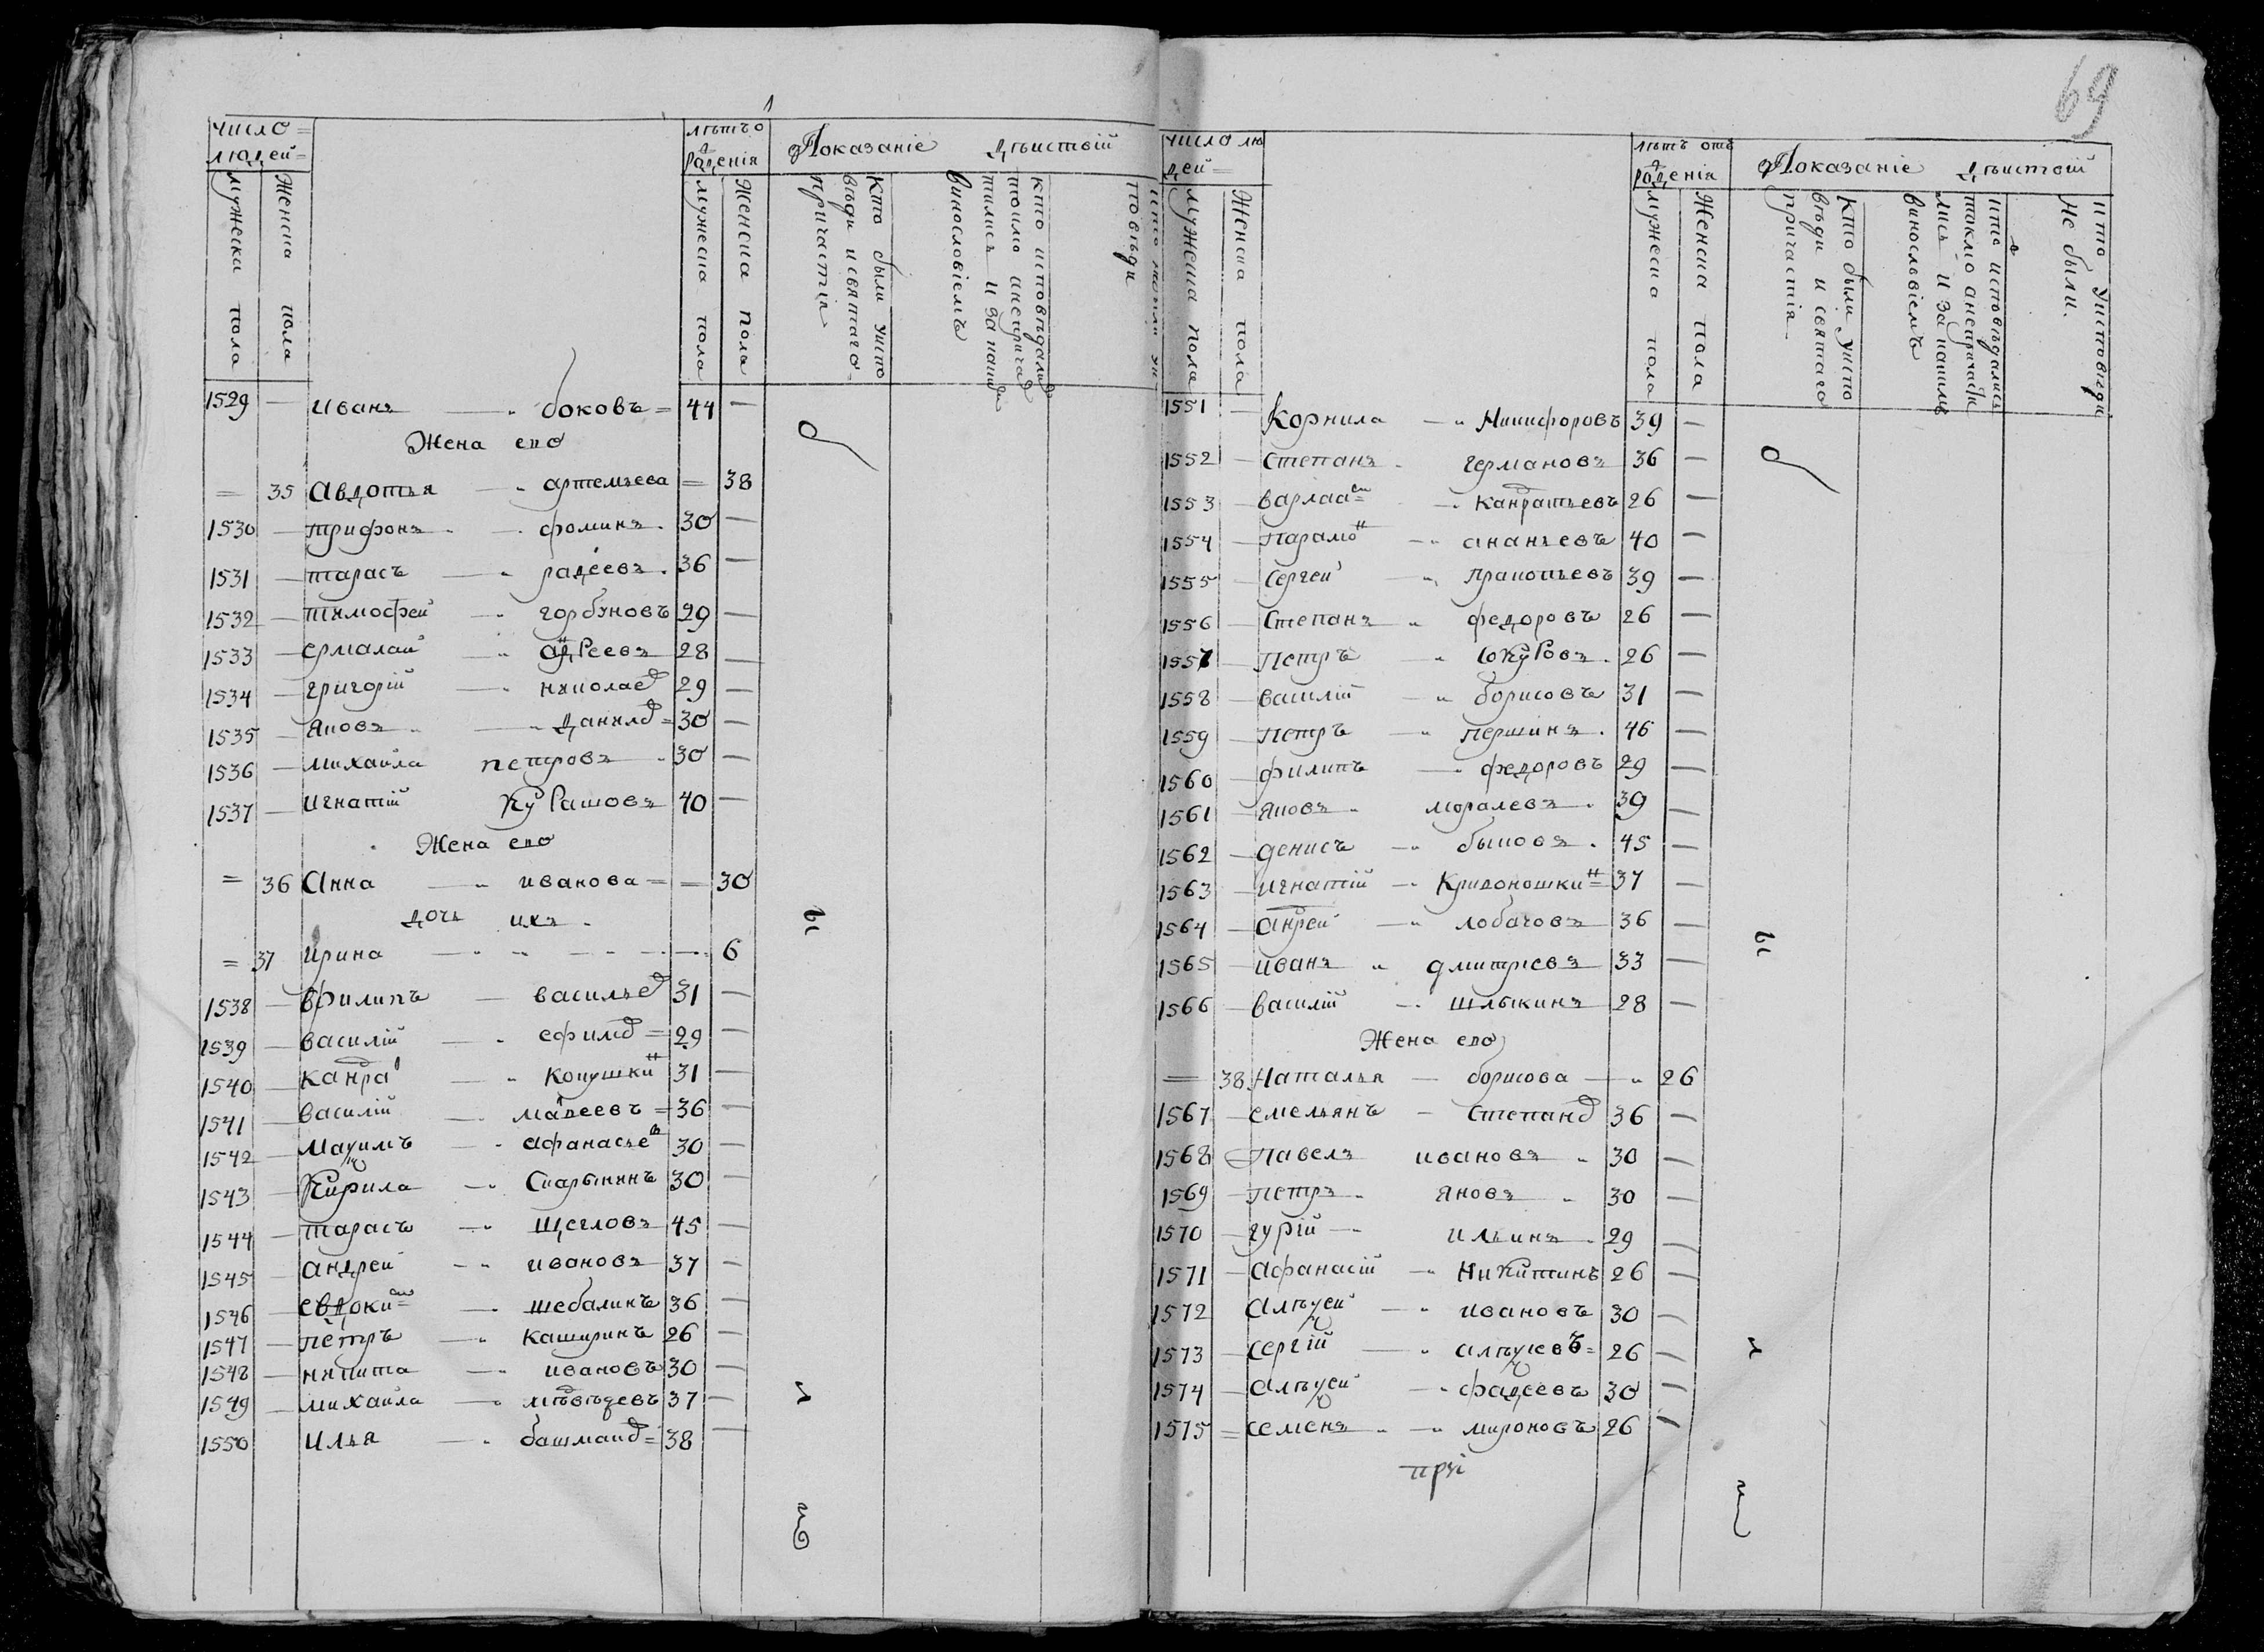 69
число
людей
мужеска пола
Женска пола
лѣтъ о
рождения
мужеска пола
Женска пола
Показаніе дѣиствій
Кто были уиспо
вѣди и святаго
причастія
винословіемъ
повѣди
1529 — иванъ — боковъ = 44 —
Жена его
= 35 Авдотья — артемьева = 38
1530 — трифонъ — фоминъ 30 —
1531 — тарасъ — радѣевъ 36 —
1532 — тимофеи — горбуновъ 29 —
1533 — ермалаи — андреевъ 28 —
1534 — григорій — николаев 29 —
1535 — яковъ — данилов = 30 —
1536 — михаила петровъ 30 —
1537 — игнатій курашовъ 40 —
Жена его
= 36 Анна — иванова = = 30
дочь ихъ
= 37 ирина — 6
1538 — филипъ — васильев 31 —
1539 — василій — ефимов = 29 —
1540 — Канра — Копушкин 31 —
1541 — василій — матвеевъ = 36 —
1542 — Маѯимъ — афанасьев 30 —
1543 — Кирила — Скарынинъ 30 —
1544 — тарасъ — щегловъ 45 —
1545 — андреи — ивановъ 37 —
1546 — евдоким — шебалинъ 36 —
1547 — петръ — каширинъ 26 —
1548 — никита — ивановъ 30 —
1549 — михаила — мѣдвѣдевъ 37 —
1550 илья — башмаков = 38 —
число лю
дей
мужеска пола
Женска пола
лѣтъ отъ
рождения
мужеска пола
Женска пола
Показаніе дѣиствій
Кто были уиспо
вѣди и святаго
причастія
винословіемъ
не были
1551 — Корнила — Никифоровъ 39 —
1552 — степанъ германовъ 36 —
1553 — варлаам — Кандратьевъ 26 —
1554 — парамон — ананьевъ 40 —
1555 — сергеи — пракопьевъ 39 —
1556 — степанъ федоровъ 26 —
1557 — петръ — юкуровъ 26 —
1558 — василій — борисовъ 31 —
1559 — петръ — першинъ 46 —
1560 — филипъ — федоровъ 29 —
1561 — яковъ моралевъ 39 —
1562 — денисъ — быковъ 45 —
1563 — игнатій — Кривоношкин 37 —
1564 — андреи — лобачовъ 36 —
1565 — иванъ дмитриевъ 33 —
1566 — василій — шлыкинъ 28 —
Жена его
= 38 Наталья — борисова — 26
1567 — емельянъ — степанов 36 —
1568 — павелъ ивановъ 30 —
1569 — петръ яковъ 30 —
1570 — гурій — ильинъ 29 —
1571 — афанасій — никитинъ 26 —
1572 алѣѯеи — ивановъ 30 —
1573 — сергій — алѣѯеевъ = 26 —
1574 — алѣѯеи — фадеевъ 30 —
1575 = семенъ — мироновъ 26 —